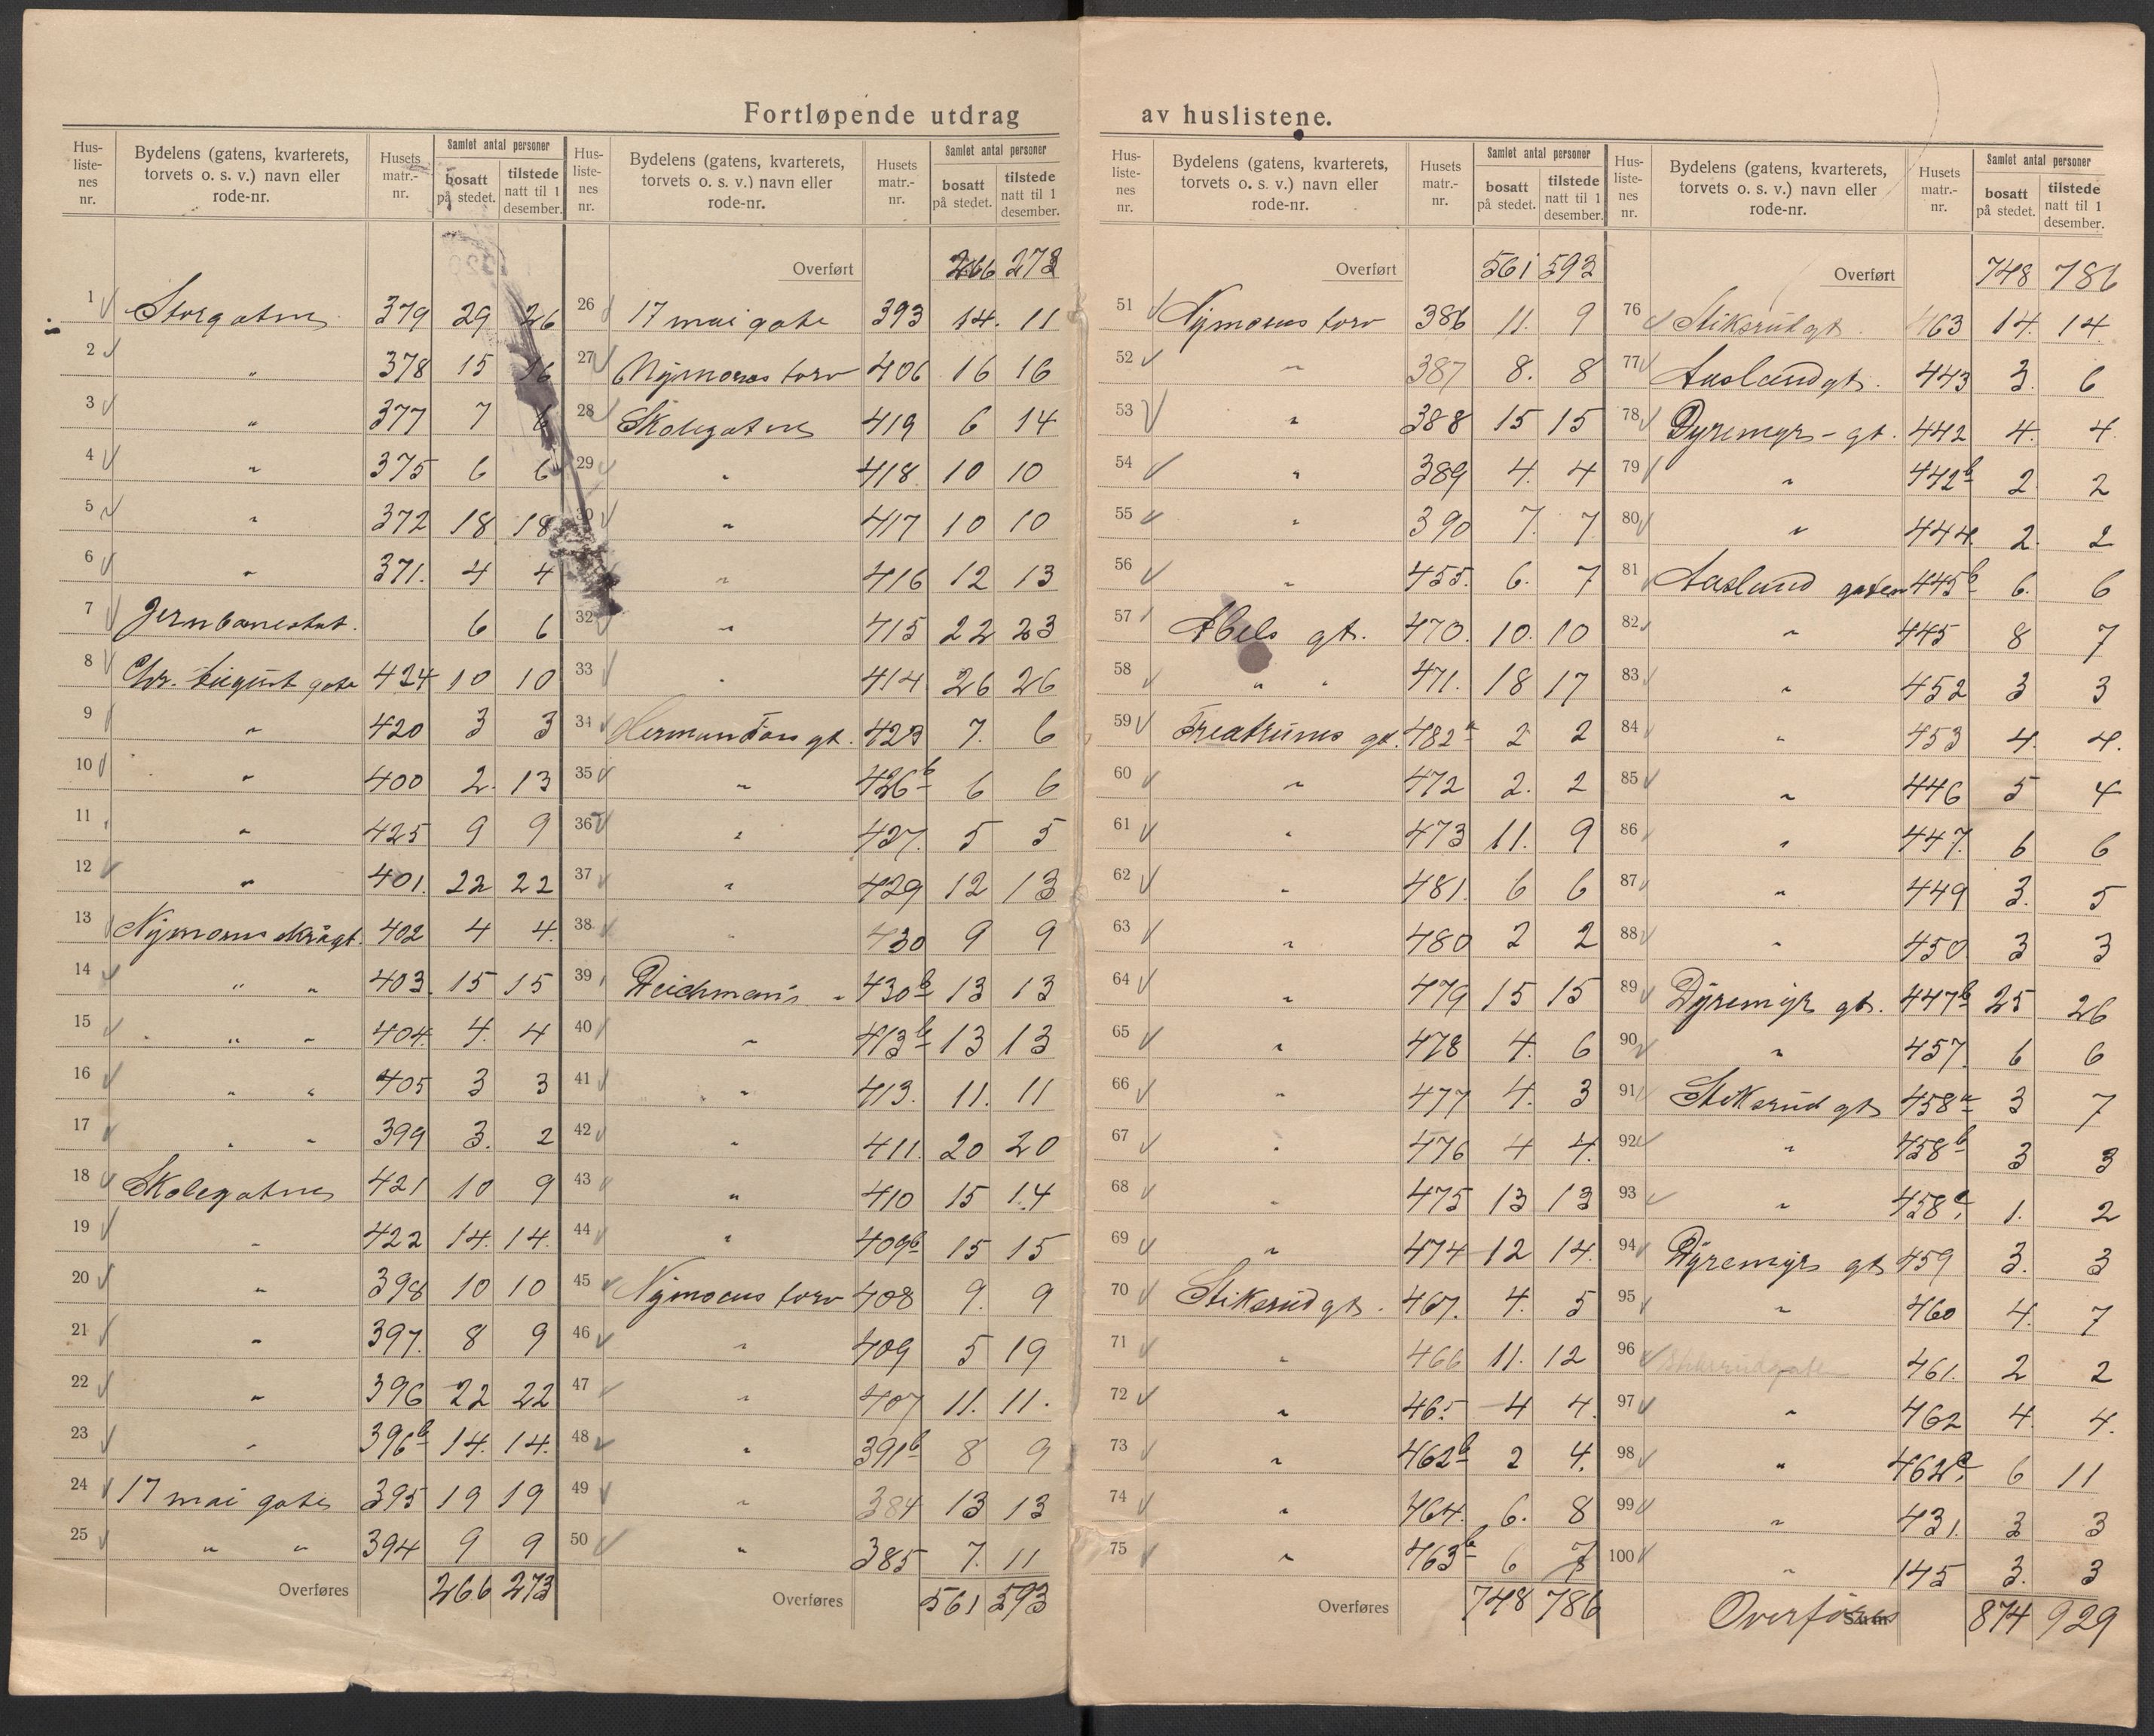 Fortløpende utdrag av huslistene.
Hus-liste-nes nr. Bydelens (gatens, kvarterets, torvets o. s. v.) navn eller rode-nr. Husets matr.-nr. Samlet antal personer bosatt på stedet. tilstede natt til 1 desember.
1 Storgaten 379 29 26
2 " 378 15 16
3 " 377 7 6
4 " 375 6 6
5 " 372 18 18
6 " 371. 4 4
7 Jernbanestat. 6 6
8 Chr. August gate 424 10 10
9 " 420 3 3
10 " 400 2. 13
11 " 425 9 9
12 " 401. 22 22
13 Nymoens skrågt. 402 4 4.
14 " " 403. 15 15
15 " " " 404. 4. 4
16 " " 405 3 3
17 " " 399 3. 2
18 Skolegaten 421 10 9
19 " 422 14. 14.
20 " 398 10 10
21 " 397. 8 9
22 " 396 22 22
23 " 396b 14. 14.
24 17 mai gate 395 19 19
25 " " 394 9 9
Overføres 266 273
Hus-liste-nes nr. Bydelens (gatens, kvarterets, torvets o. s. v.) navn eller rode-nr. Husets matr.-nr. Samlet antal personer bosatt på stedet. tilstede natt til 1 desember.
Overført 266 273
26 17 mai gate 393 14. 11
27 Nymoens torv 406 16 16
28 Skolegaten 419 6 14
29 " 418 10 10
30 " 417 10 10
" 416 12 13
32 " 415 22 23
33 " 414 26 26
34 Herman Foss gt. 423 7. 6
35 " 426b 6 6
36 " 427. 5 5
37 " 429 12 13
38 " 430 9 9
39 Deichmans " 430b 13 13
40 " 413b 13 13
41 " 413. 11. 11
42 " 411. 20 20
43 " 410 15 14
44 " 409b 15 15
45 Nymoens torv 408 9. 9
46 " 409 5 19
47 " 407 11. 11.
48 " 391b 8 9
49 " 384 13 13
50 " 385 7. 11
Overføres 561 593
Hus-liste-nes nr. Bydelens (gatens, kvarterets, torvets o. s. v.) navn eller rode-nr. Husets matr.-nr. Samlet antal personer bosatt på stedet. tilstede natt til 1 desember.
Overført 561 593
51 Nymoens torv 386 11. 9
52 " 387 8. 8
53 " 388 15 15
54 " 389 4. 4
55 " 390 7. 7
56 " 455. 6. 7
57 Abels gt. 470. 10. 10
58 " " 471. 18 17
59 gt. 482a 2 2
60 " 472 2. 2
61 " 473 11. 9
62 " 481. 6 6
63 " 480 2 2
64 " 479 15 15
65 " 478 4. 6
66 " 477 4. 3
67 " 476 4 4.
68 " 475 13 13
69 " 474 12 14.
70 Stiksrud gt. 467. 4. 5
71 " 466 11. 12
72 " 465 4 4.
73 " 462b 2 4.
74 " 464. 6. 8
75 " 463b 6 7
Overføres 748 786
Hus-liste-nes nr. Bydelens (gatens, kvarterets, torvets o. s. v.) navn eller rode-nr. Husets matr.-nr. Samlet antal personer bosatt på stedet. tilstede natt til 1 desember.
Overført 748 786
76 Stiksrud gt. 463 14. 14.
77 Aaslund gt. 443 3. 6
78 Dyremyrs-gt. 442 4. 4
79 " 442b 2. 2
80 " 444. 2. 2
81 Aaslund gaten 445b 6. 6
82 " 445 8 7
83 " 452 3 3
84 " 453 4. 4.
85 " 446 5 4
86 " 447. 6 6
87 " 449 3. 5
88 " 450 3 3
89 Dyremyr gt. 447b 25 26
90 " 457. 6 6
91 Stiksrud gt. 458a 3 7
92 " 458b 3 3
93 " 458c 1. 2
94 Dyremyrs gt. 459 3. 3
95 " 460 4. 7
96 Stiksrudgate 461. 2 2
97 " 462 4. 4.
98 " 462c. 6 11
99 " 431. 3 3
100 " 145 3. 3
Overføres Sum 874 929